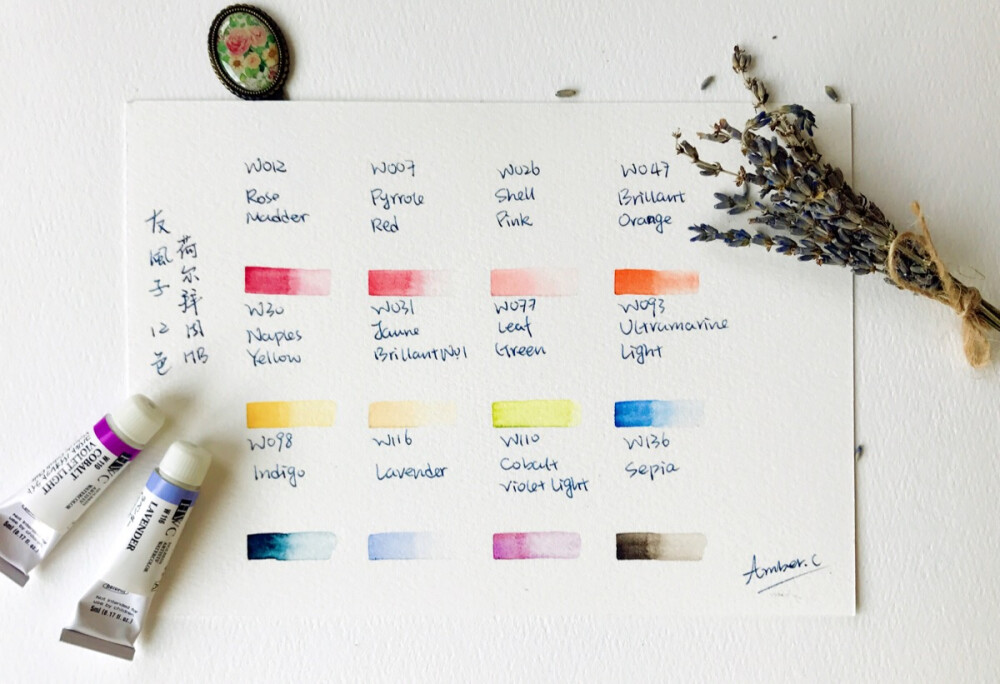 W012
Rose
Madder
W007
Pyrrole
Red
W026
Shell
Pink
W047
Brillant
Orange
友風子12色
荷尔拜因HB
W30
Naples
Yellow
W031
Jaune
Brillant No1
W077
Leaf
Green
W093
Ultramarine
Light
W098
Indigo
W116
Lavender
W110
Cobalt
Violet Light
W136
Sepia
Amber.C
W110
COBALT
VIOLET LIGHT
5ml (0.17 fl.oz.)
HWC
ARTISTS'
WATERCOLOR
W116
LAVENDER
Not intended for
use by children.
5ml (0.17 fl.oz.)